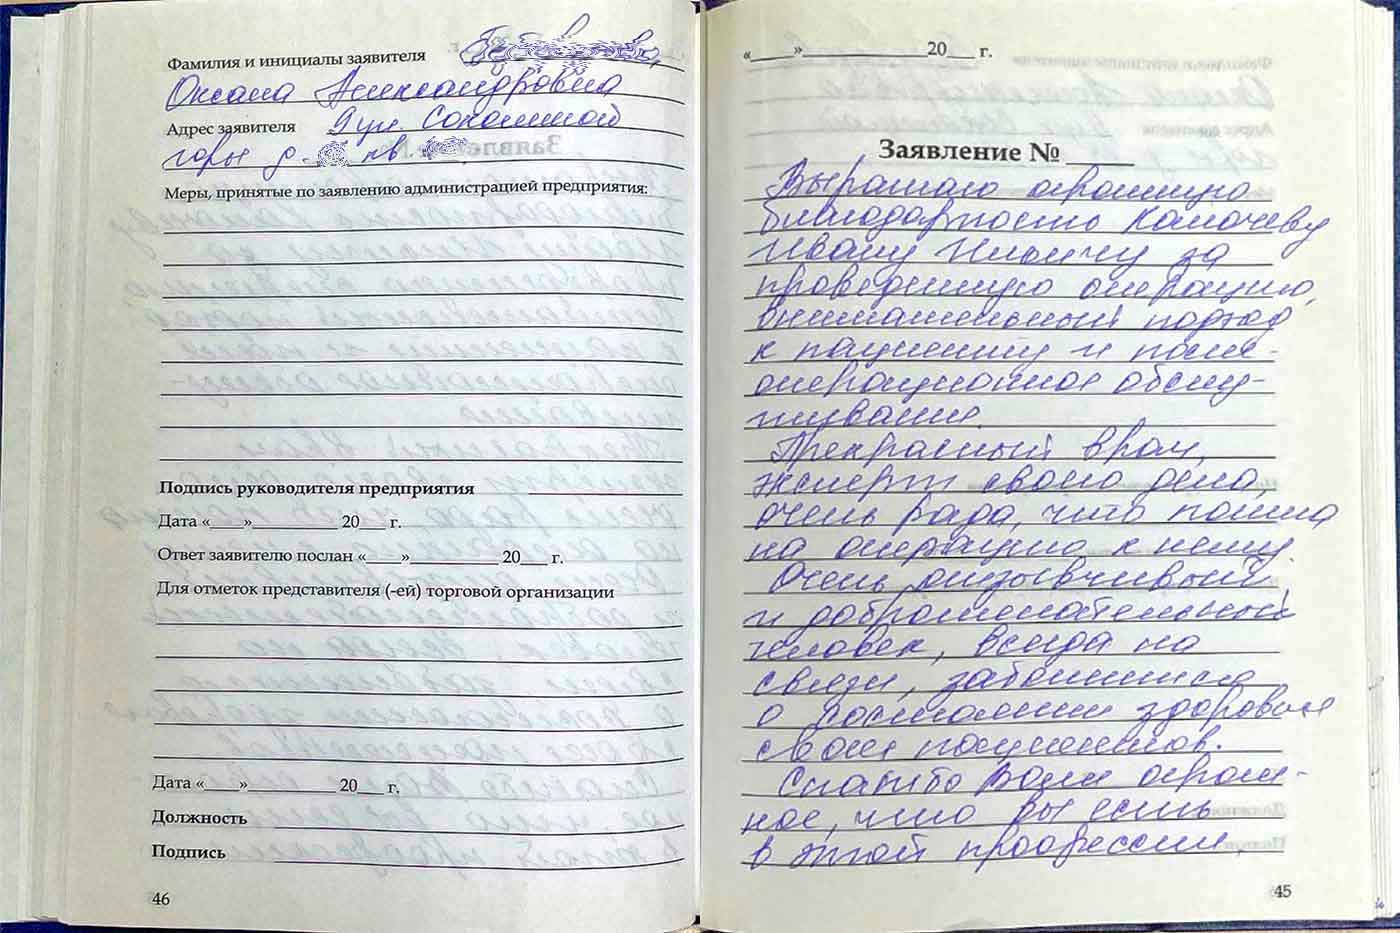 Фамилия и инициалы заявителя
Оксана Александровна
Адрес заявителя 9 ул. Соколиной
горы д. кв.
Меры, принятые по заявлению администрацией предприятия:
Подпись руководителя предприятия
Дата «____»__________ 20___ г.
Ответ заявителю послан «____»__________ 20___ г.
Для отметок представителя (-ей) торговой организации
Дата «____»__________ 20___ г.
Должность
Подпись
46
«_____»______________ 20___ г.
Заявление № _____
Выражаю огромную
благодарность Калачеву
Ивану Ильичу за
проведенную операцию,
внимательный подход
к пациенту и после-
операционное обслу-
живание.
Прекрасный врач,
эксперт своего дела,
очень рада, что попала
на операцию к нему.
Очень отзывчивый
и доброжелательный
человек, всегда на
связи, заботится
о состоянии здоровья
своих пациентов.
Спасибо Вам огром-
ное, что Вы есть
в этой профессии.
45